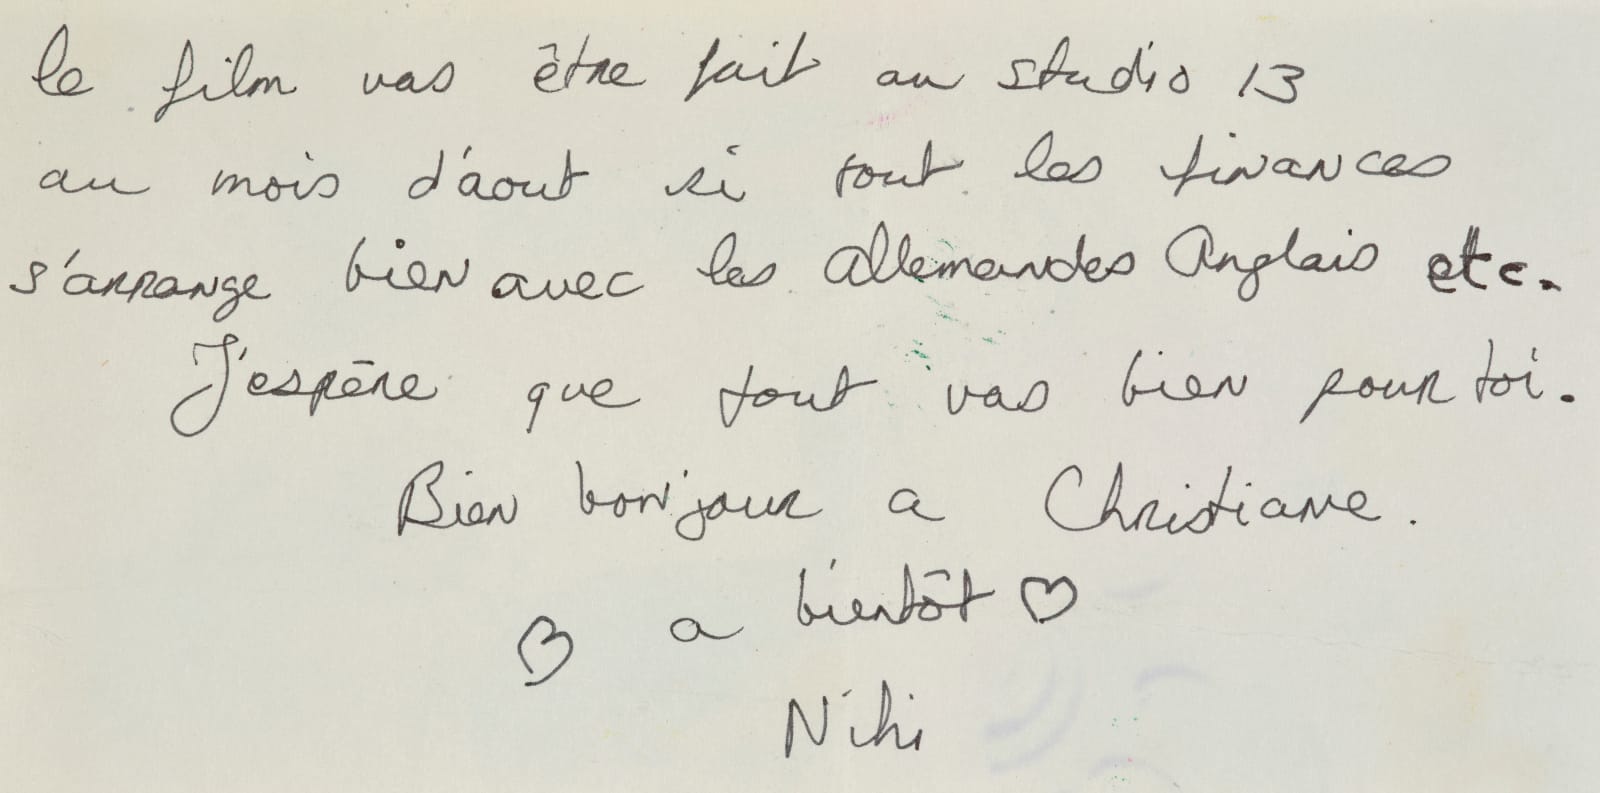 le film vas être fait au studio 13
au mois d'áout si tout les finances
s'arrange bien avec les allemandes Anglais etc.
J'espère que tout vas bien pour toi.
Bien bonjour a Christiane.
♡ a bientôt ♡
Niki